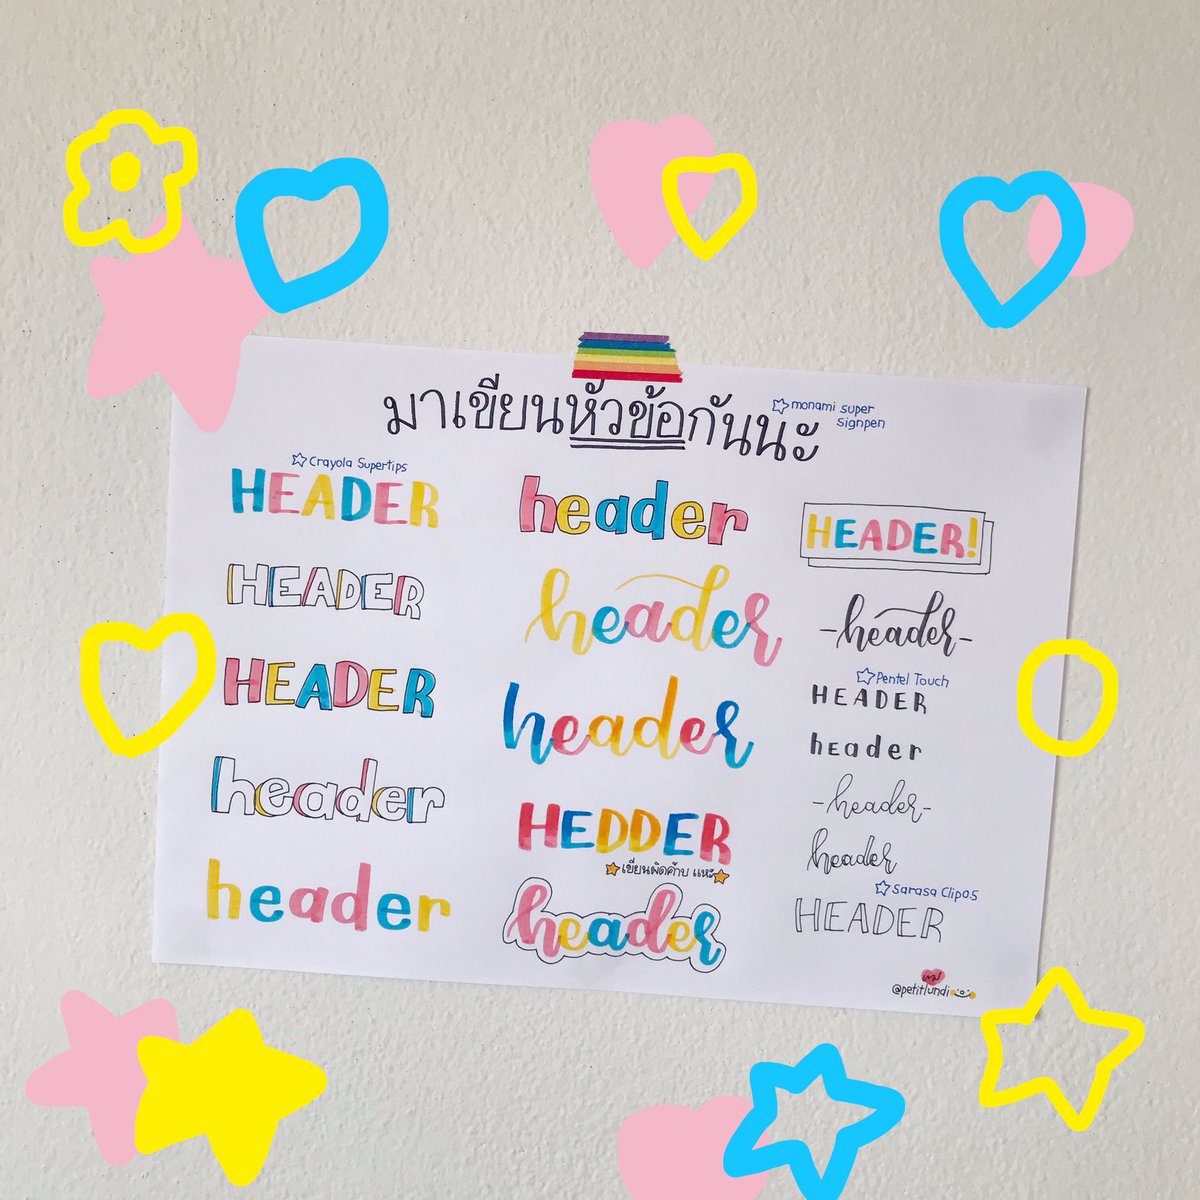 มาเขียนหัวข้อกันนะ
monami super
signpen
Crayola Supertips
HEADER
HEADER
HEADER
header
header
header
header
header
HEDDER
เขียนผิดค้าบ แหะ
header
HEADER!
-header-
Pentel Touch
HEADER
header
-header-
header
Sarasa Clip0.5
HEADER
@petitlundi